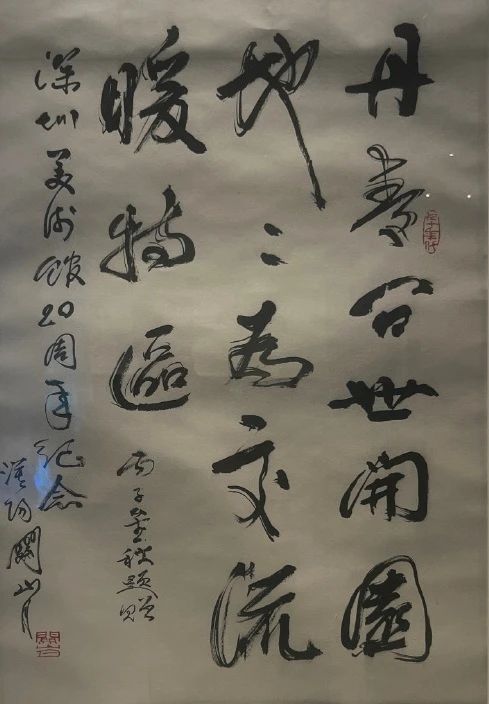 丹青世開園
地〻為交流
暖特區
丙子金秋題贈
深圳美術館20周年紀念
漠陽關山月